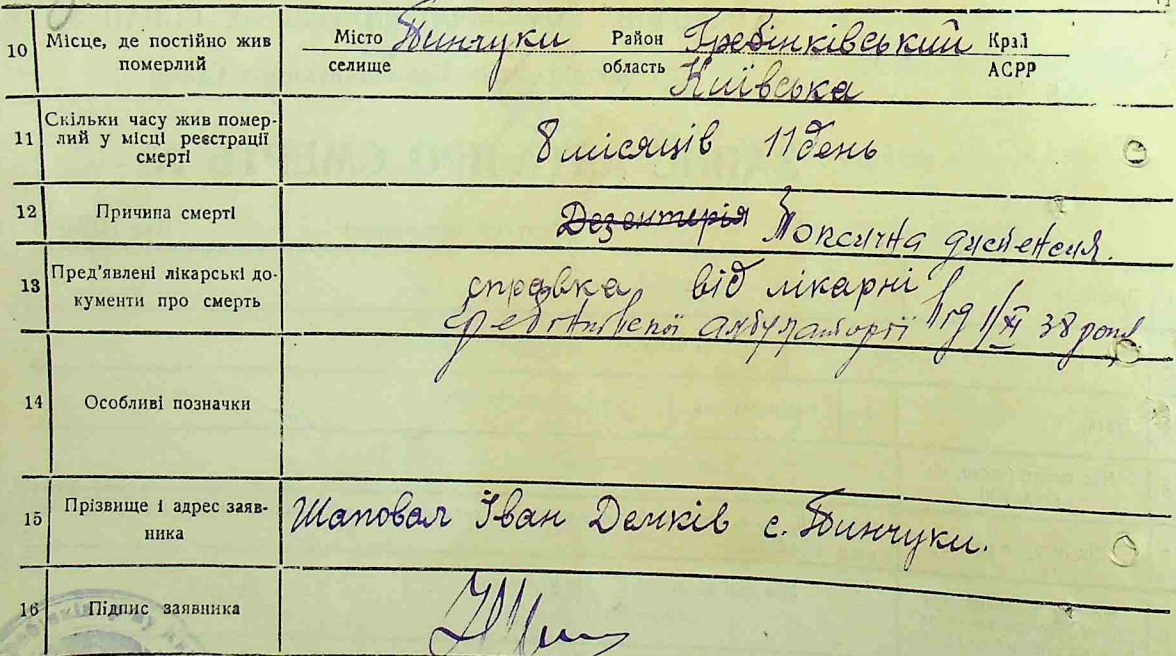 10 Місце, де постійно жив померлий Місто селище Пинчуки Район область Гребінківський Київська Край АСРР
11 Скільки часу жив померлий у місці реєстрації смерті 8 місяців 11 день
12 Причина смерті Дезентерія Токсична диспепсия.
13 Пред'явлені лікарські документи про смерть справка від лікарні
амбулаторії від 1/XI 38 року
14 Особливі позначки
15 Прізвище і адрес заявника Шаповал Іван Демків с. Пинчуки.
16 Підпис заявника